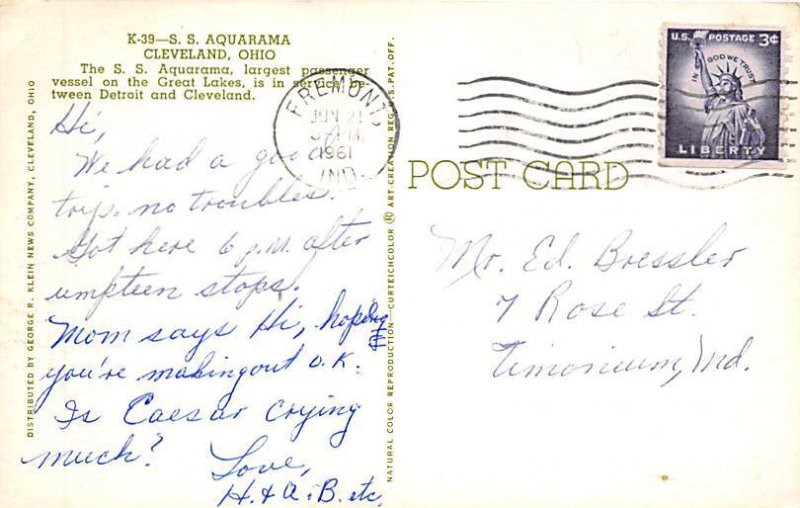 K-39—S. S. AQUARAMA
CLEVELAND, OHIO
The S. S. Aquarama, largest passenger
vessel on the Great Lakes, is in service be-
tween Detroit and Cleveland.
Hi,
We had a good
trip. no troubles.
Got here 6 p.m. after
umpteen stops.
Mom says Hi, hoping
you're making out O.K.
Is Caesar crying
much?
Love,
H. & A. B. etc.
DISTRIBUTED BY GEORGE R. KLEIN NEWS COMPANY, CLEVELAND, OHIO
NATURAL COLOR REPRODUCTION—CURTEICHCOLOR ® ART-CREATION REG. U.S. PAT. OFF.
FREMONT
JUN 21
PM
1961
IND
POST CARD
U.S. POSTAGE 3¢
IN GOD WE TRUST
LIBERTY
Mr. Ed. Bressler
7 Rose St.
Timonium, Md.